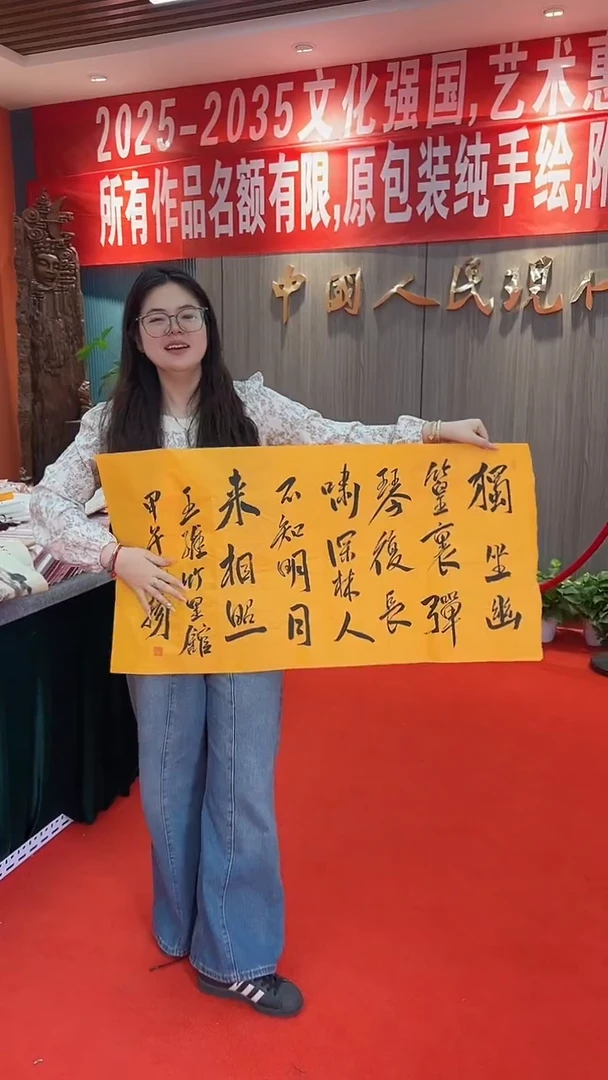 2025-2035文化强国,艺术惠
所有作品名额有限,原包装纯手绘,
中国人民现
獨坐幽
篁裏彈
琴復長
嘯深林人
不知明月
来相照
王維竹里館
甲午